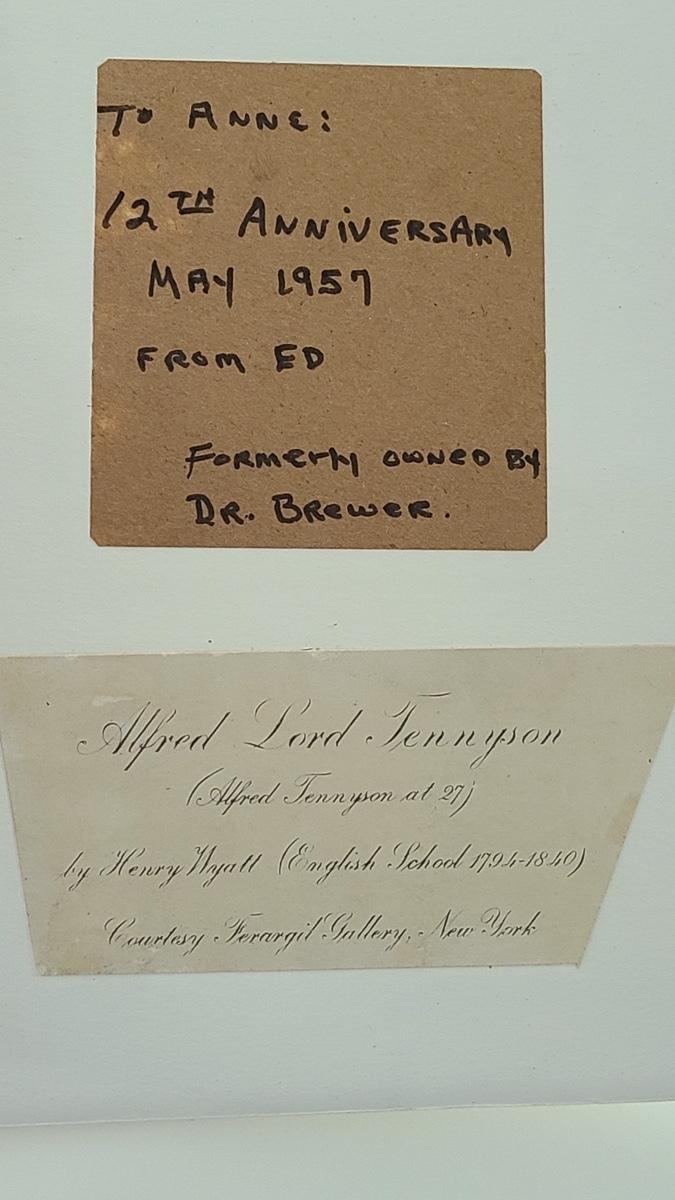 To ANNE:
12TH ANNIVERSARY
MAY 1957
FROM ED
FORMERLY OWNED BY
DR. BREWER.
Alfred Lord Tennyson
(Alfred Tennyson at 27)
by Henry Wyatt (English School 1794-1840)
Courtesy Ferargil Gallery, New York